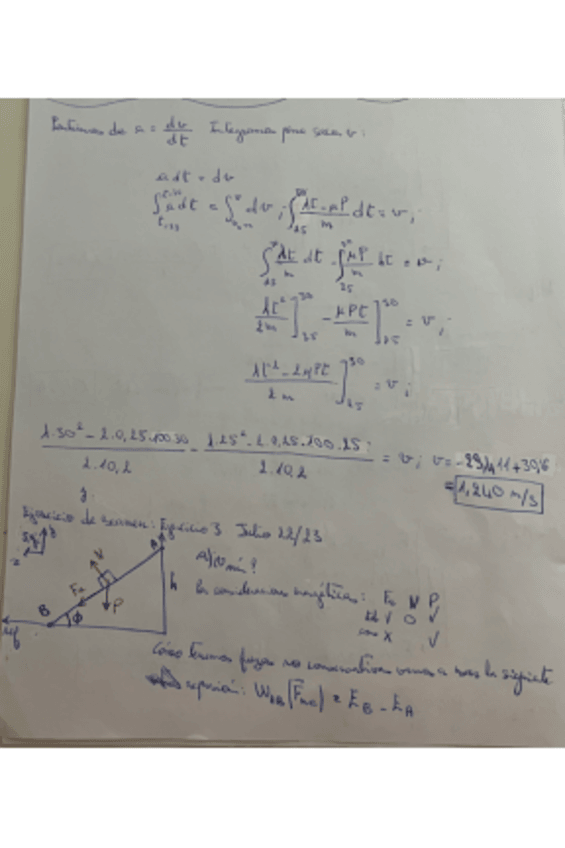 Partimos de a = dv/dt Integramos para sacar v:
a dt = dv
∫ a dt = ∫ dv ; ∫ (λt - μP)/m dt = v ;
∫ λt/m dt - ∫ μP/m dt = v ;
λt²/2m ]₂₅³⁰ - μPt/m ]₂₅³⁰ = v ;
(λt² - 2μPt)/2m ]₂₅³⁰ = v ;
(1·30² - 2·0,25·100·30)/(2·10,2) - (1·25² - 2·0,25·100·25)/(2·10,2) = v ; v = -29,411 + 30,6
= 1,240 m/s
Ejercicio de examen: Ejercicio 3 Julio 22/23
A) v mín?
Las consideramos energéticas: Fr N P
✓ O ✓
cons X ✓
B φ Fr N P A h
ref
Como tenemos fuerzas no conservativas vamos a usar la siguiente
expresión: W_AB (F_nc) = E_B - E_A